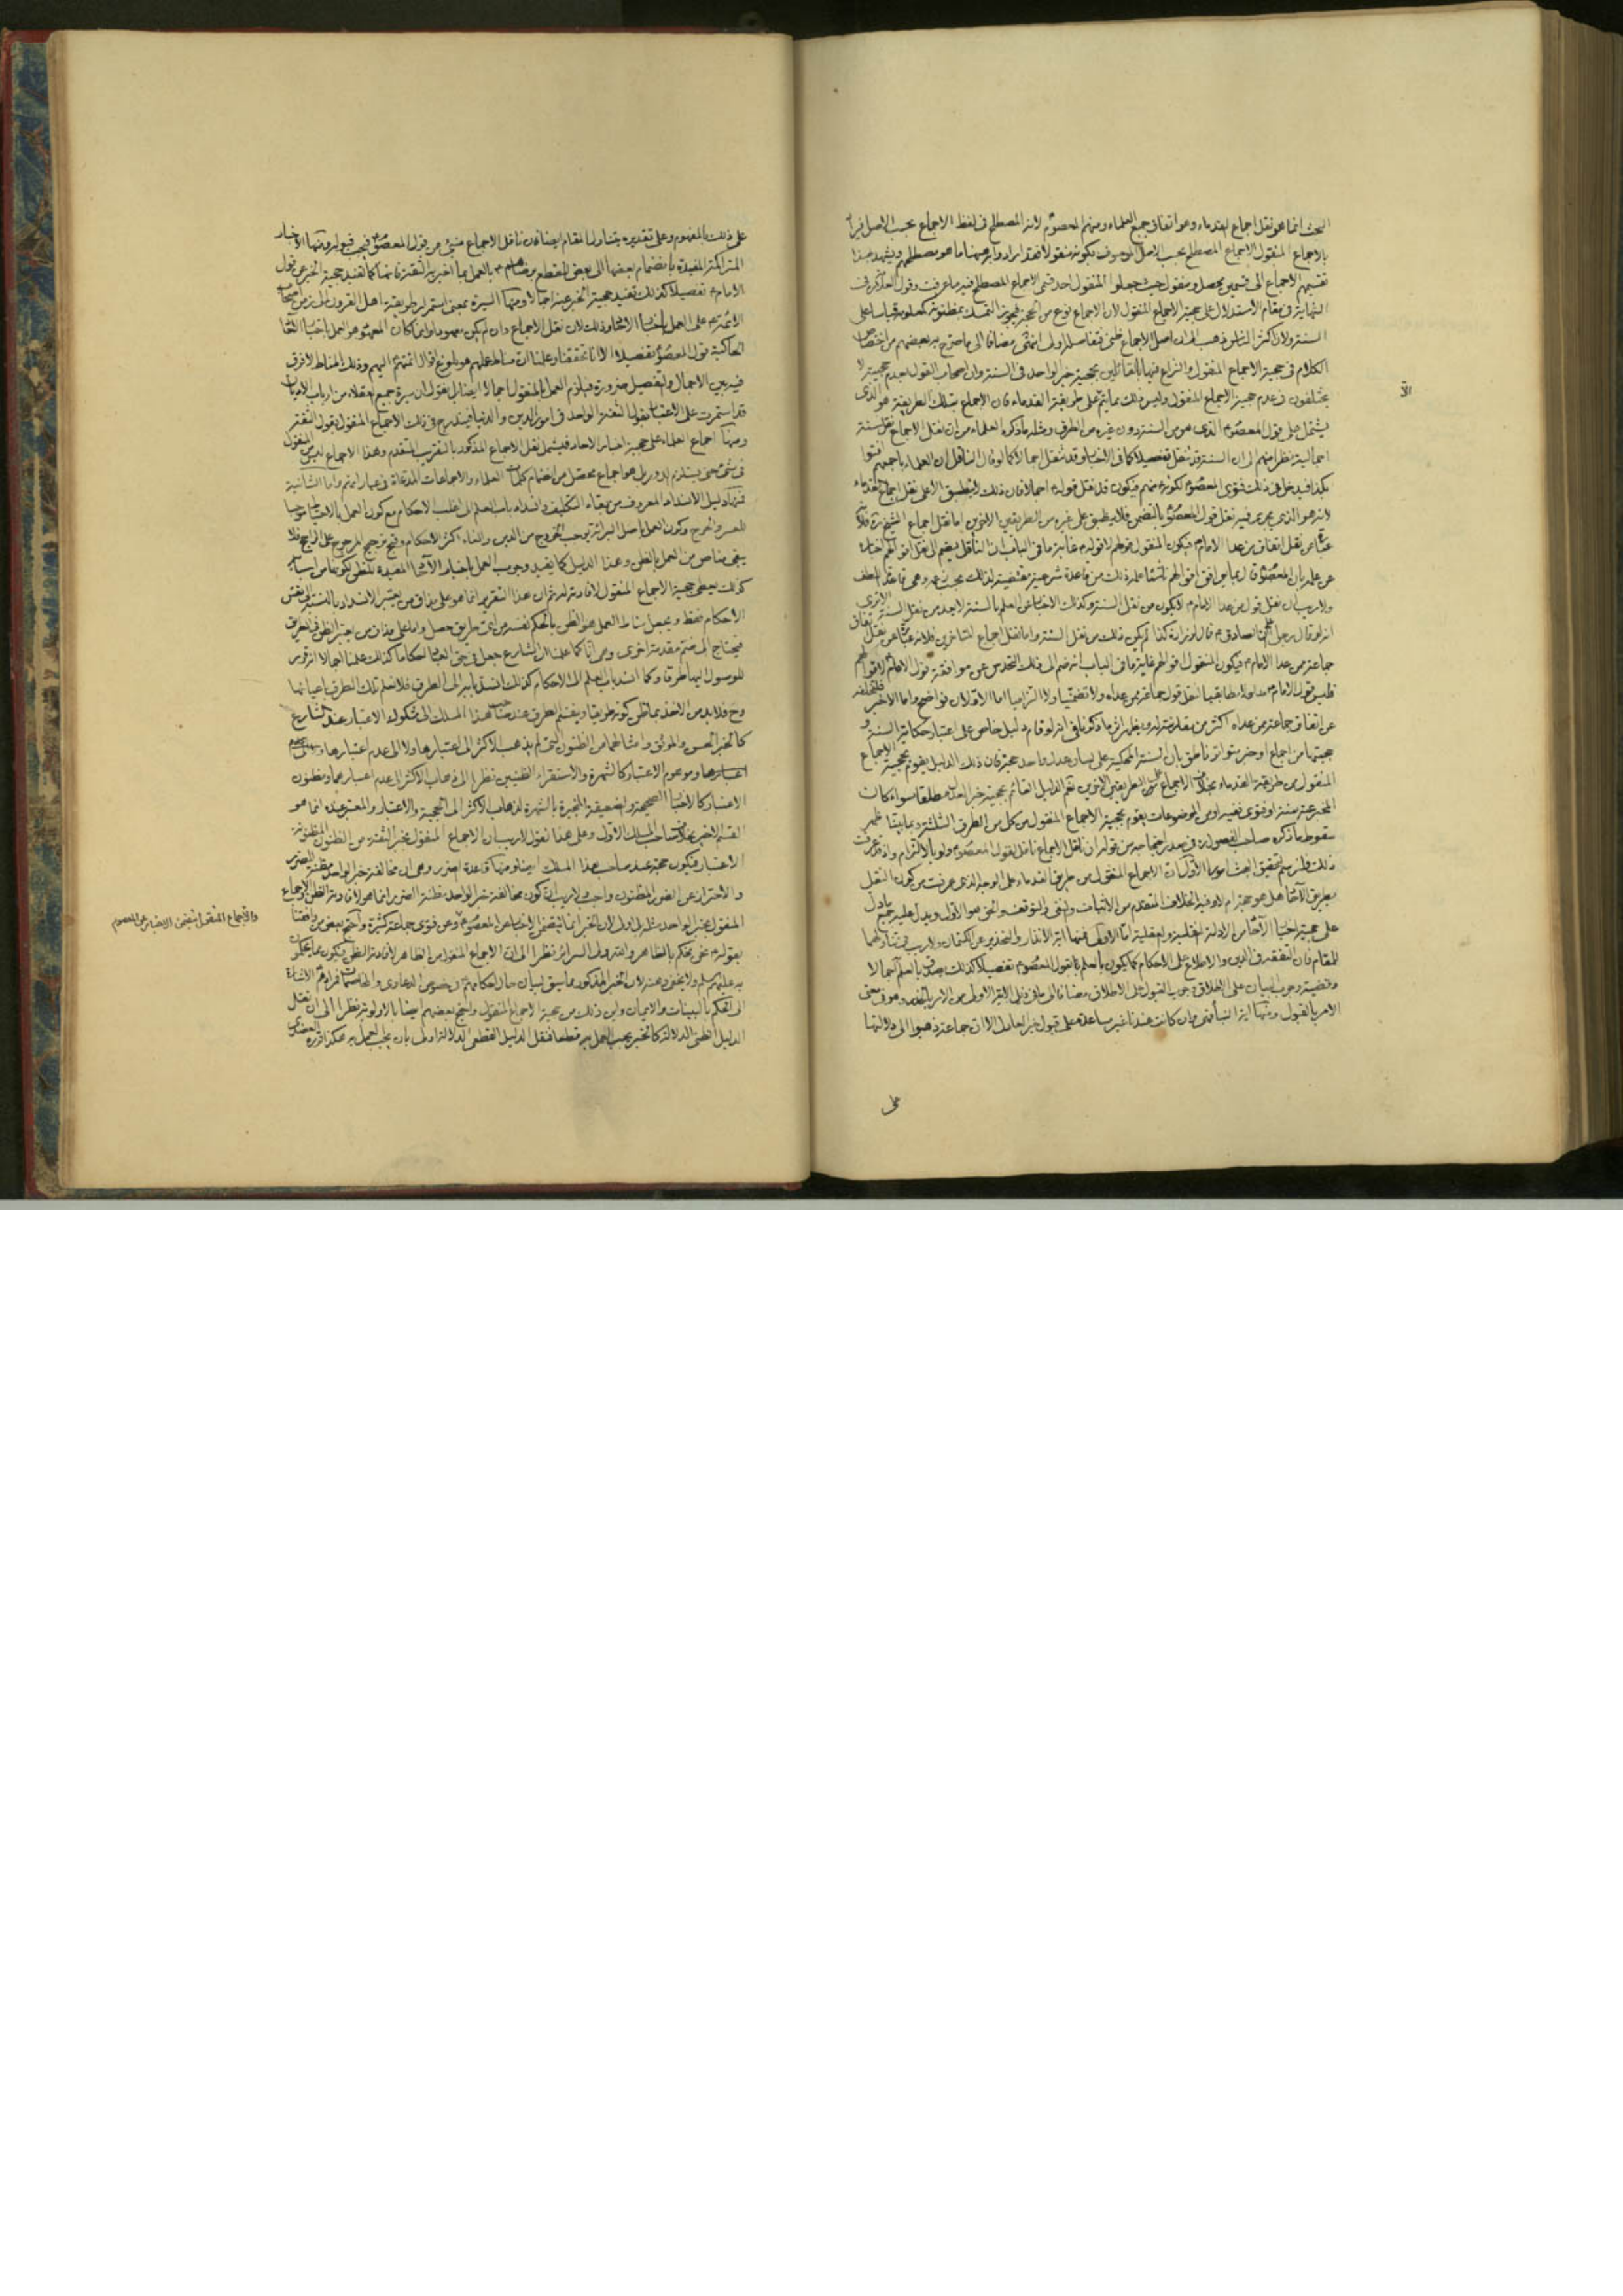 البحث انما هو نقل اجماع القدماء وهو اتفاق جميع العلماء ومنهم المعصوم لانه المصطلح في لفظ الاجماع بحسب الاصل
بالاجماع المنقول الاجماع المصطلح بحسب الاصل الموصوف بكونه منقولا فقد ارادوا به هنا ما هو مصطلحهم ويشهد بهذا
تقسيمهم الاجماع الى قسمين محصل ومنقول حيث جعلوا المنقول احد قسمي الاجماع المصطلح فيه ما عرفت وقول العلامة في
النهاية في مقام الاستدلال على حجية الاجماع المنقول لان الاجماع نوع من الحجة فيجوز التمسك بمظنونه كمعلومه قياسا على
السنة ولان اكثر الناس ذهب الى ان اصل الاجماع ظني فتفاصيله اولى انتهى مضافا الى ما صرح به بعضهم من اختصاص
الكلام في حجية الاجماع المنقول والنزاع فيها بالقائلين بحجية خبر الواحد في السنة وان اصحاب القول بعدم حجيته لا
يختلفون في عدم حجية الاجماع المنقول وليس ذلك مما يتم على طريقة القدماء فان الاجماع بتلك الطريقة هو الذي
الا
يشتمل على قول المعصوم الذي هو من السنة دون غيره من الطرق ومثله ما ذكره العلماء من ان نقل الاجماع نقل سنة
اجمالية نظرا منهم الى ان السنة قد تنقل تفصيلا كما في الاخبار وقد تنقل اجمالا كما لو قال الناقل ان العلماء باجمعهم افتوا
بكذا فيدخل في ذلك فتوى المعصوم لكونه منهم فيكون قد نقل قوله اجمالا فان ذلك لا ينطبق الا على نقل اجماع القدماء
لانه هو الذي يجري فيه نقل قول المعصوم بالتضمن فلا ينطبق على غيره من الطريقين الاخرين اما نقل اجماع الشيخ ره فلانه
عبارة عن نقل اتفاق من عدا الامام فيكون المنقول قولهم لا قوله غاية ما في الباب ان الناقل يضم الى نقل اقوالهم اخباره
عن علمه بان المعصوم قال بما يوافق اقوالهم ناشئا علمه ذلك من قاعدة شرعية مقتضية لذلك بحسب زعمه وهي قاعدة اللطف
ولا ريب ان نقل قول من عدا الامام لا يكون من نقل السنة وكذلك الاخبار عن العلم بالسنة لا يعد من نقل السنة الا ترى
انه لو قال رجل اعلم ان الصادق قال لزرارة كذا لم يكن ذلك من نقل السنة واما نقل اجماع المتاخرين فلانه عبارة عن نقل اتفاق
جماعة ممن عدا الامام فيكون المنقول قولهم غاية ما في الباب انه ضم الى ذلك التحدس عن موافقة قول الامام لاقوالهم
عن اتفاق جماعة ممن عداه اكثر من مقارنته له ويظهر اثر ما ذكرنا في انه لو قام دليل خاص على اعتبار حكاية السنة و
حجيتها من اجماع او خبر متواتر ناطق بان السنة المحكية على لسان عدل واحد حجة فان ذلك الدليل يقوم بحجية الاجماع
المنقول من طريقة القدماء بخلاف الاجماع على الطريقين الاخرين نعم الدليل القائم بحجية خبر العدل مطلقا سواء كان
المخبر عنه سنة او فتوى فقيه او من الموضوعات يقوم بحجية الاجماع المنقول من كل من الطرق الثلثة وبما بينا ظهر
سقوط ما ذكره صاحب الفصول ره في صدر احتجاجه من قوله ان ناقل الاجماع ناقل لقول المعصوم ولو بالالتزام واذ قد عرفت
ذلك فلنرسم لتحقيق البحث امورا الاول ان الاجماع المنقول من طريق القدماء على الوجه الذي عرفت من كون النقل
بطريق الاحاد هل هو حجة ام لا وفيه الخلاف المتقدم من الاثبات والنفي والتوقف والحق هو الاول ويدل عليه جميع ما دل
على حجية اخبار الاحاد من الادلة النقلية والعقلية اما الاولى فمنها اية الانذار والتحذير عن الكتمان ولا ريب في تناولهما
للمقام فان التفقه في الدين والاطلاع على الاحكام كما يكون بالعلم بقول المعصوم تفصيلا كذلك يصدق بالعلم به اجمالا
وقضية وجوب البيان على الاطلاق وجوب القبول على الاطلاق مضافا الى ما في ذيل الاية الاولى من الامر بالحذر وهو في معنى
الامر بالقبول ومنها اية النبأ فهي وان كانت عندنا غير مساعدة على قبول خبر العادل الا ان جماعة ذهبوا الى دلالتها
على
على ذلك بالمفهوم وعلى تقديره يتناول المقام ايضا لان ناقل الاجماع منبئ عن قول المعصوم فيجب قبوله ومنها الاخبار
المتراكثرة المفيدة بانضمام بعضها الى بعض القطع برضاهم بالعمل بما اخبر به الثقة فانها كما تفيد حجية الخبر عن قول
الامام تفصيلا كذلك تفيد حجية الخبر عنه اجمالا ومنها السيرة بمعنى استمرار طريقة اهل القرون الى زمن اصحاب
الائمة على العمل باخبار الاحاد وذلك لان نقل الاجماع وان لم يكن معهودا وانما كان المعهود هو العمل باخبار الثقات
الحاكية قول المعصوم تفصيلا الا انا تحققنا وعلمنا ان مناط عملهم هو بلوغ اقوال ائمتهم اليهم وذلك المناط لا فرق
فيه بين الاجمال والتفصيل ضرورة فيلزم العمل بالمنقول اجمالا ايضا بل نقول ان سيرة جميع العقلاء من ارباب الاديان
قد استمرت على الاعتماد بقول الثقة الواحد في امور الدين والدنيا فيندرج في ذلك الاجماع المنقول بقول الثقة
ومنها اجماع العلماء على حجية اخبار الاحاد فيشمل نقل الاجماع المذكور بالتقريب المتقدم وهذا الاجماع ليس من المنقول
في شيء حتى يستلزم الدور بل هو اجماع محصل من انضمام كلمات العلماء والاجماعات المدعاة في عباراتهم واما الثانية
فمنها دليل الانسداد المعروف من بقاء التكليف وانسداد باب العلم الى اغلب الاحكام مع كون العمل بالاحتياط موجبا
للعسر والحرج وكون العمل باصل البرائة يوجب الخروج من الدين والغاء اكثر الاحكام وقبح ترجيح المرجوح على الراجح فلا
يبقى مناص من العمل بالظن وهذا الدليل كما يفيد وجوب العمل باخبار الاحاد المفيدة للظن لكونها من اسبابه
كذلك يعطي حجية الاجماع المنقول لافادته له ثم ان هذا التقرير انما هو على مذاق من يعتبر الانسداد بالنسبة الى نفس
الاحكام فقط ويجعل مناط العمل هو الظن بالحكم نفسه من اي طريق حصل واما على مذاق من يعتبر الظن في الطريق
فيحتاج الى ضم مقدمة اخرى وهي انا كما علمنا ان الشارع جعل في حق العباد احكاما كذلك علمنا اجمالا انه قرر
للوصول اليها طرقا وكما انسد باب العلم الى الاحكام كذلك انسد بابه الى الطرق فلا نعلم تلك الطرق باعيانها
وح فلا بد من الاخذ بما ظن كونه طريقا وينقسم الطرق عند صاحب هذا المسلك الى مشكوك الاعتبار عند الشارع
كالخبر الحسن والموثق وامثالهما من الظنون التي لم يذهب الاكثر الى اعتبارها ولا الى عدم اعتبارها
وموهوم الاعتبار كالشهرة والاستقراء الظنيين نظرا الى ذهاب الاكثر الى عدم اعتبارهما ومظنون
الاعتبار كالاخبار الصحيحة والضعيفة المنجبرة بالشهرة لذهاب الاكثر الى الحجية والاعتبار والمعتبر عنده انما هو
القسم الاخير بخلاف صاحب المسلك الاول وعلى هذا نقول لا ريب ان الاجماع المنقول بخبر الثقة من الظنون المظنونة
الاعتبار فيكون حجة عند صاحب هذا المسلك ايضا ومنها قاعدة الضرر وهي ان مخالفة خبر الواحد مظنة للضرر
والاحتراز عن الضرر المظنون واجب ولا ريب ان كون مخالفة خبر الواحد مظنة الضرر انما هو لافادته الظن والاجماع
والاجماع المنقول يتضمن الاخبار عن المعصوم
المنقول بخبر الواحد مثله بل اولى لان الخبر انما يتضمن الاخبار عن المعصوم وعن فتوى جماعة كثيرة واحتج بعض من وافقنا
بقوله نحن نحكم بالظاهر والله يتولى السرائر نظرا الى ان الاجماع المنقول من الظاهر لافادته الظن فيكون مما يحكم
الى الحكم بالبينات والايمان واين ذلك من حجية الاجماع المنقول واحتج بعضهم ايضا بالاولوية نظرا الى ان نقل
الدليل الظني الدلالة كالخبر يجب العمل به قطعا فنقل الدليل القطعي الدلالة اولى بان يجب العمل به هكذا قرره العضدي